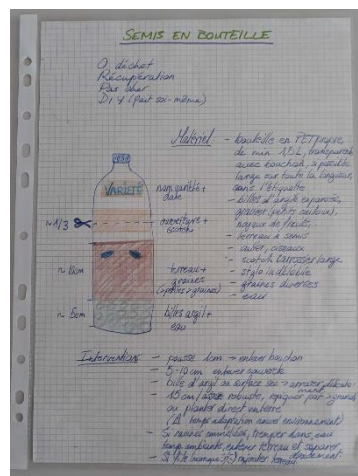 SEMIS EN BOUTEILLE
0 déchet
Récupération
Pas cher
DIY (fait soi-même)
Matériel - bouteille en PET propre
de min 1,5L, transparente
avec bouchon, si possible
large sur toute la longueur,
dans l'étiquette
- billes d'argile expansée,
gravier (petits cailloux),
noyaux de fruits,
- terreau à semis
- cutter, ciseaux
- scotch carrossier large
- stylo indélébile
- graines diverses
- eau
VARIÉTÉ
nom variété +
date
~1/3
ouverture +
scotch
~ 10cm
terreau +
graines
~ 5cm
billes argil +
eau
Interventions - pousse 1cm → enlever bouchon
- 5-10 cm enlever couvercle
- bille d'argil ou surface sec → arroser délicate
ment
- 15 cm / assez robuste, repiquer par + grands
ou planter direct enterre
(⚠ temps adaptation nouvel environnement)
- Si racines emmêlées, tremper dans eau
temp. ambiante, enlever terreau et séparer
délicatement
- Si filé rajouter terreau